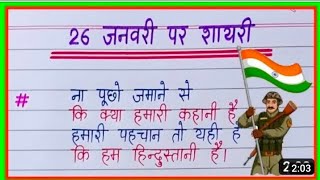 26 जनवरी पर शायरी
# ना पूछो जमाने से
कि क्या हमारी कहानी है
हमारी पहचान तो यही है
कि हम हिन्दुस्तानी हैं।
2:03